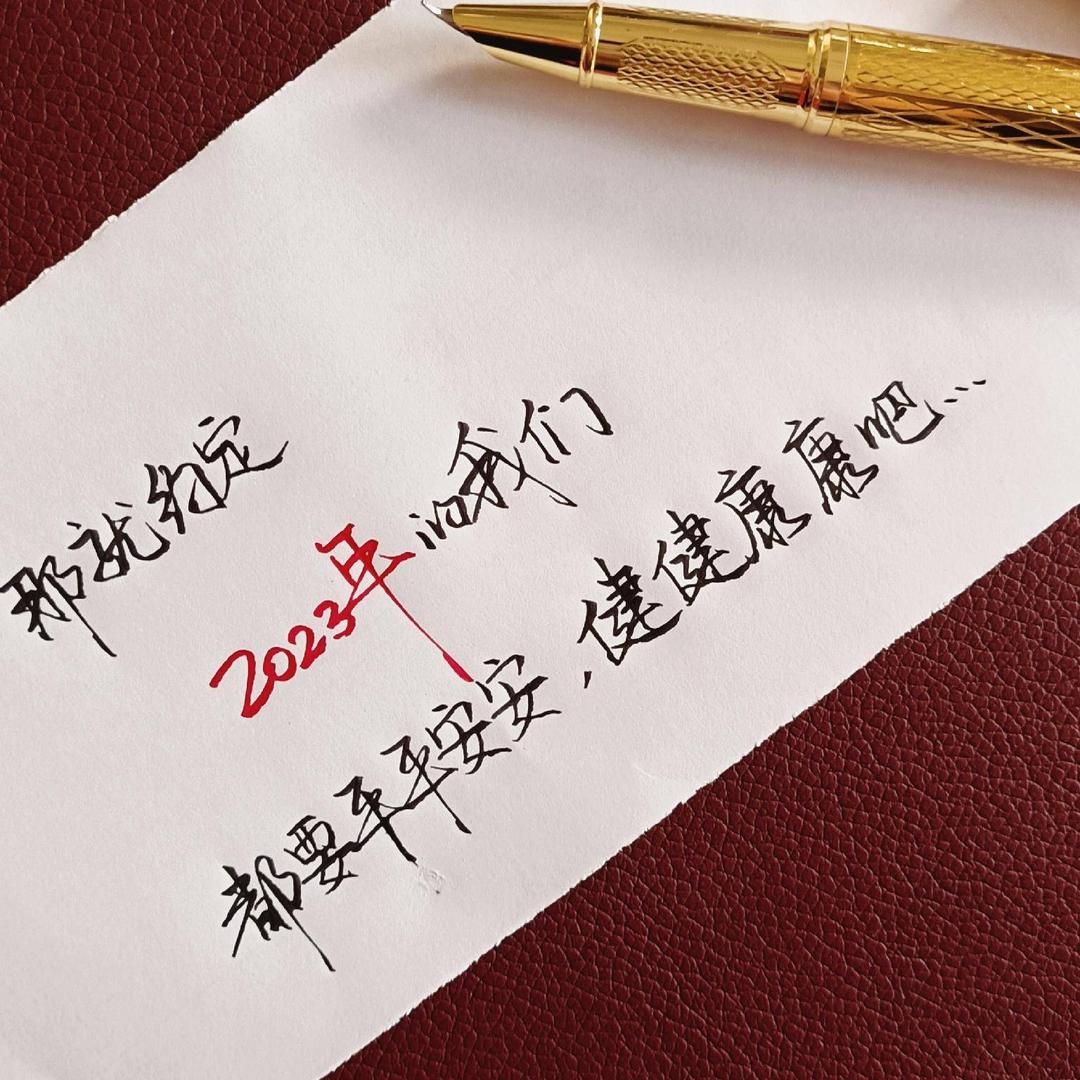 那就约定
2023年的我们
都要平平安安，健健康康吧...